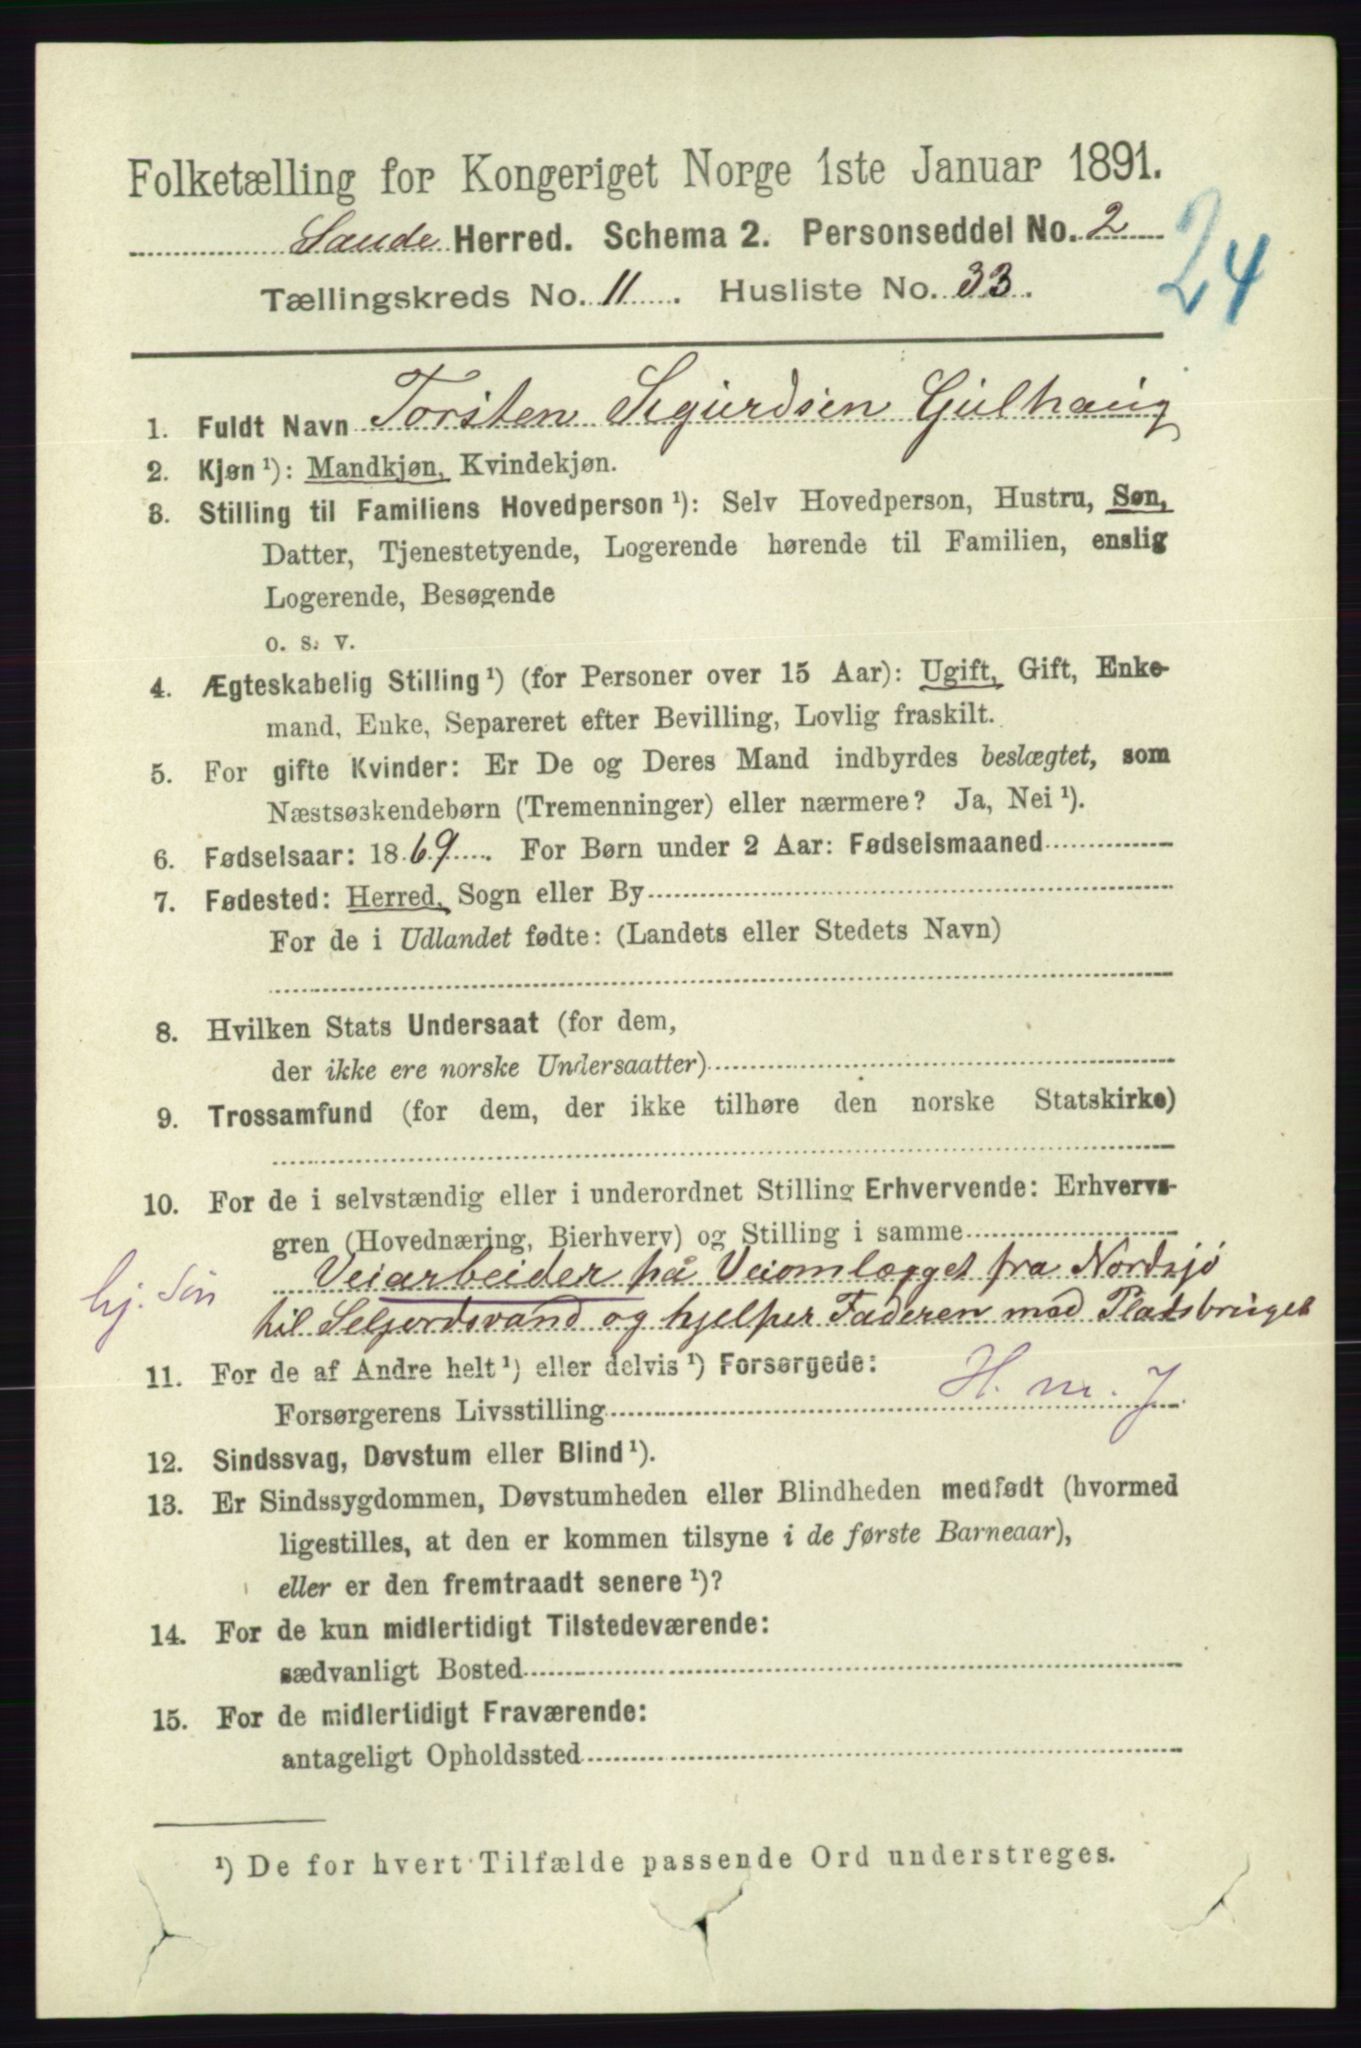 Folketælling for Kongeriget Norge 1ste Januar 1891.
Saude Herred. Schema 2. Personseddel No. 2
24
Tællingskreds No. 11. Husliste No. 33.
1. Fuldt Navn Torsten Sigurdsen Gulhaug
2. Kjøn ¹): Mandkjøn, Kvindekjøn.
3. Stilling til Familiens Hovedperson ¹): Selv Hovedperson, Hustru, Søn,
Datter, Tjenestetyende, Logerende hørende til Familien, enslig
Logerende, Besøgende
o. s. v.
4. Ægteskabelig Stilling ¹) (for Personer over 15 Aar): Ugift, Gift, Enke-
mand, Enke, Separeret efter Bevilling, Lovlig fraskilt.
5. For gifte Kvinder: Er De og Deres Mand indbyrdes beslægtet, som
Næstsøskendebørn (Tremenninger) eller nærmere? Ja, Nei ¹).
6. Fødselsaar: 1869. For Børn under 2 Aar: Fødselsmaaned
7. Fødested: Herred, Sogn eller By
For de i Udlandet fødte: (Landets eller Stedets Navn)
8. Hvilken Stats Undersaat (for dem,
der ikke ere norske Undersaatter)
9. Trossamfund (for dem, der ikke tilhøre den norske Statskirke)
10. For de i selvstændig eller i underordnet Stilling Erhvervende: Erhvervs-
gren (Hovednæring, Bierhverv) og Stilling i samme
Veiarbeider på Veiomlægget fra Nordsjö
hj. Søn
til Seljordsvand og hjelper Faderen med Pladsbruget
11. For de af Andre helt ¹) eller delvis ¹) Forsørgede:
Forsørgerens Livsstilling H. m. J.
12. Sindssvag, Døvstum eller Blind ¹).
13. Er Sindssygdommen, Døvstumheden eller Blindheden medfødt (hvormed
ligestilles, at den er kommen tilsyne i de første Barneaar),
eller er den fremtraadt senere ¹)?
14. For de kun midlertidigt Tilstedeværende:
sædvanligt Bosted
15. For de midlertidigt Fraværende:
antageligt Opholdssted
¹) De for hvert Tilfælde passende Ord understreges.